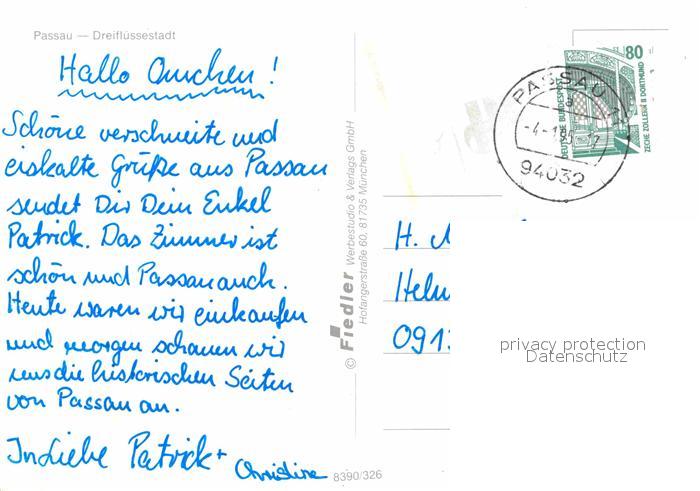 Passau — Dreiflüssestadt
Hallo Omchen!
Schöne verschneite und
eiskalte Grüße aus Passau
sendet Dir Dein Enkel
Patrick. Das Zimmer ist
schön und Passau auch.
Heute waren wir einkaufen
und morgen schauen wir
uns die historischen Seiten
von Passau an.
In Liebe Patrick +
Christine
8390/326
© Fiedler Werbestudio & Verlags GmbH
Hofangerstraße 60, 81735 München
80
DEUTSCHE BUNDESPOST
ZECHE ZOLLERN II DORTMUND
PASSAU
a
-4-1.95-17
94032
H.
Helm
091
privacy protection
Datenschutz